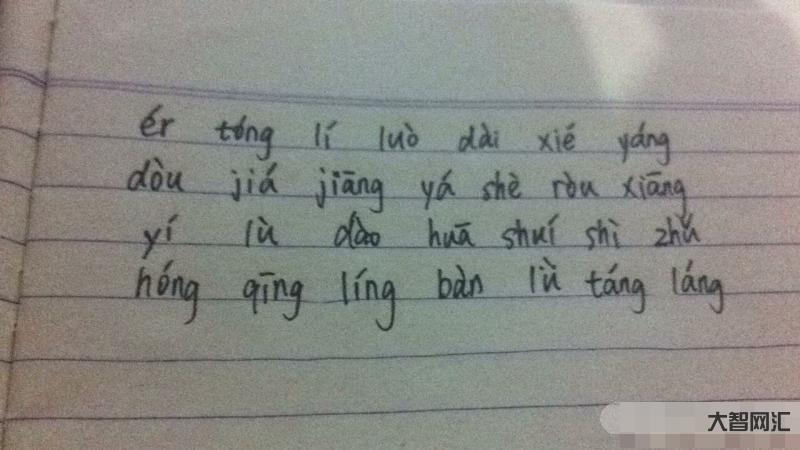 ér tóng lí luò dài xié yáng
dòu jiá jiāng yá shè ròu xiāng
yí lù dào huā shuí shì zhǔ
hóng qīng líng bàn lǜ táng láng
大智网汇